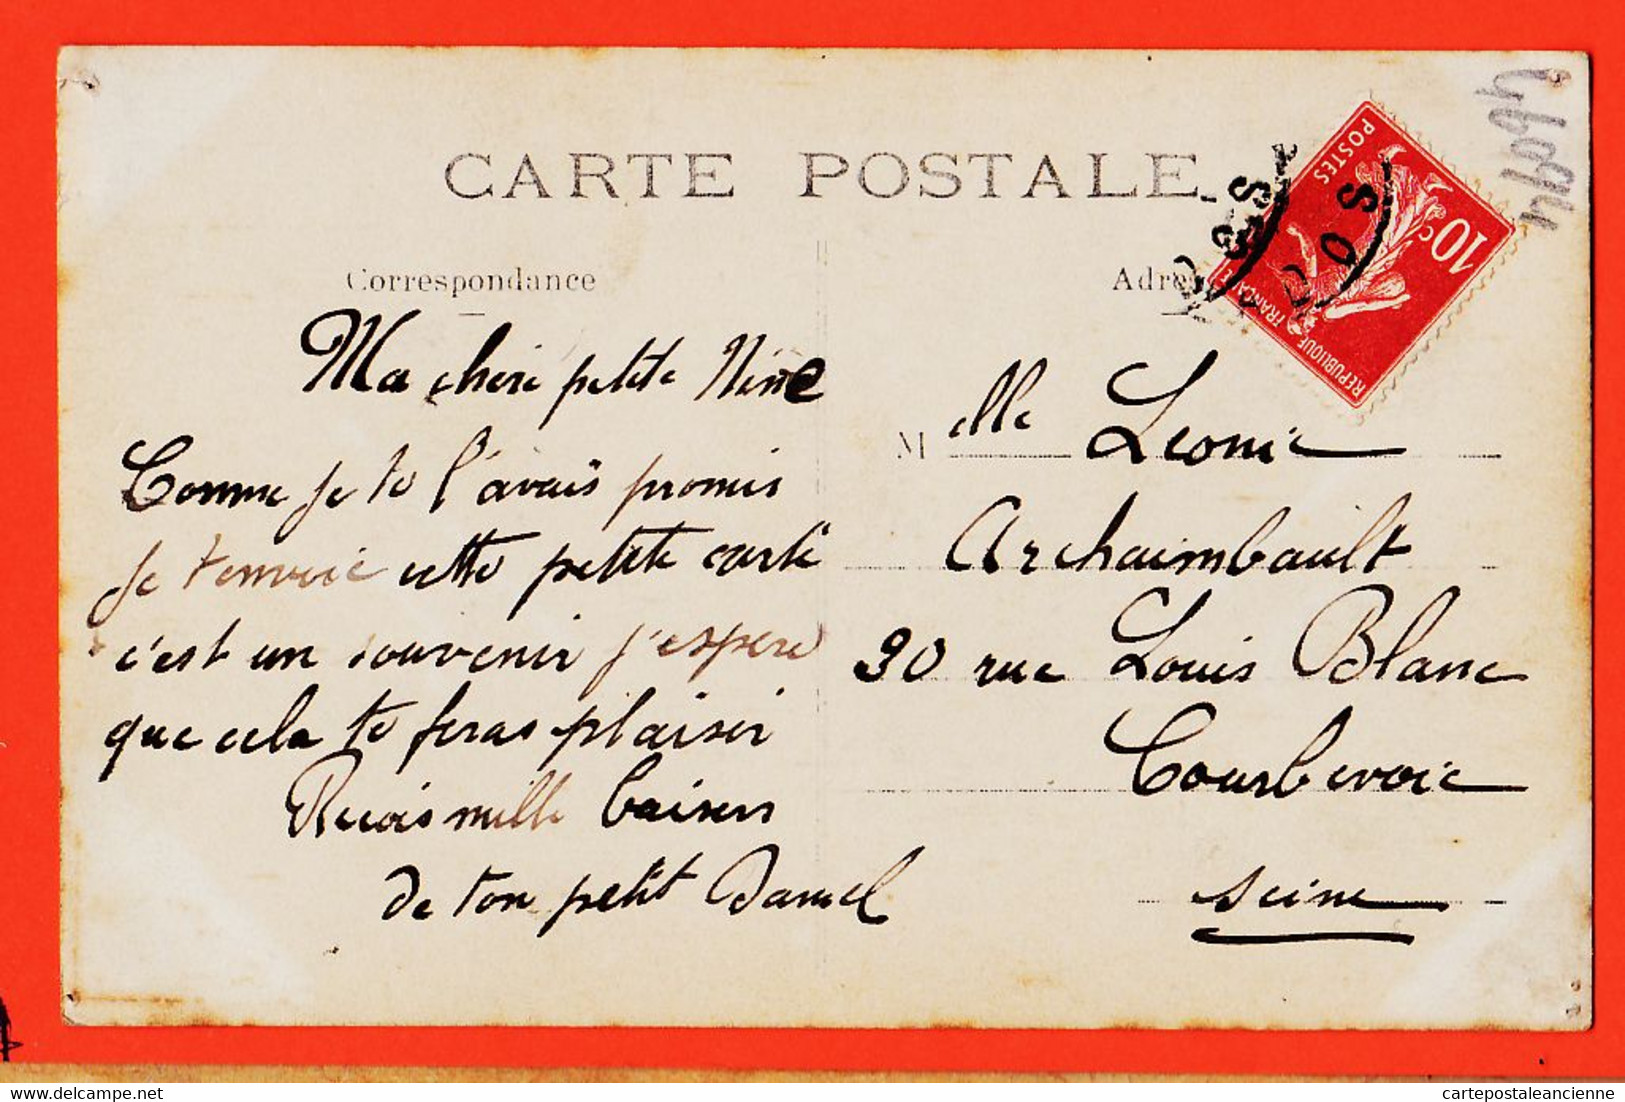 CARTE POSTALE
Correspondance
Adre
Ma cheri petite Nine
Comme je te l'avais promis
je t'envoie cette petite carte
c'est un souvenir j'espere
que cela te feras plaisir
Recois mille baisers
de ton petit Daniel
Melle Leonie
Archaimbault
90 rue Louis Blanc
Courbevoie
Seine
POSTES
10 c
REPUBLIQUE FRANÇAISE
delcampe.net
cartepostaleancienne